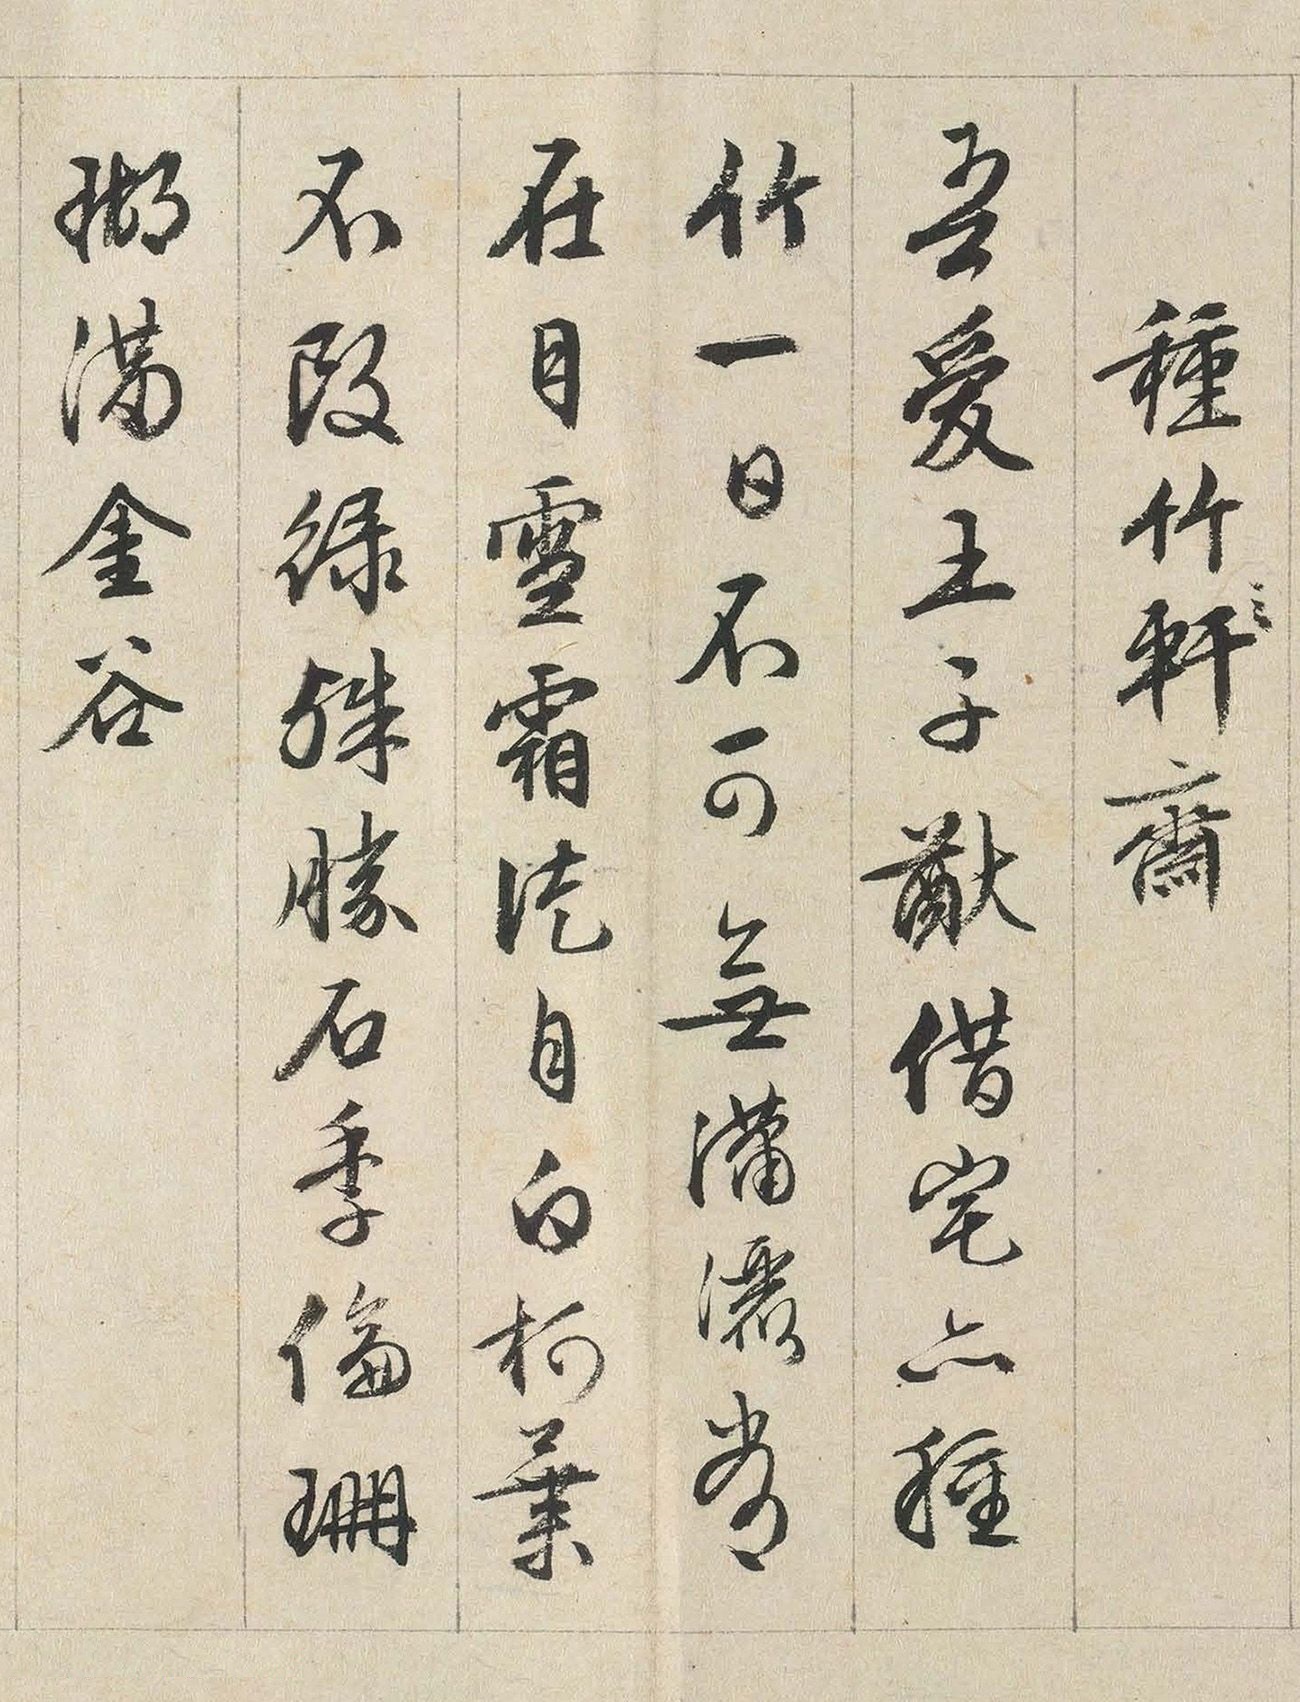 種竹軒齋
吾愛王子猷借宅亦種
竹一日不可無瀟灑常
在目雪霜徒自白柯葉
不改綠殊勝石季倫珊
瑚滿金谷